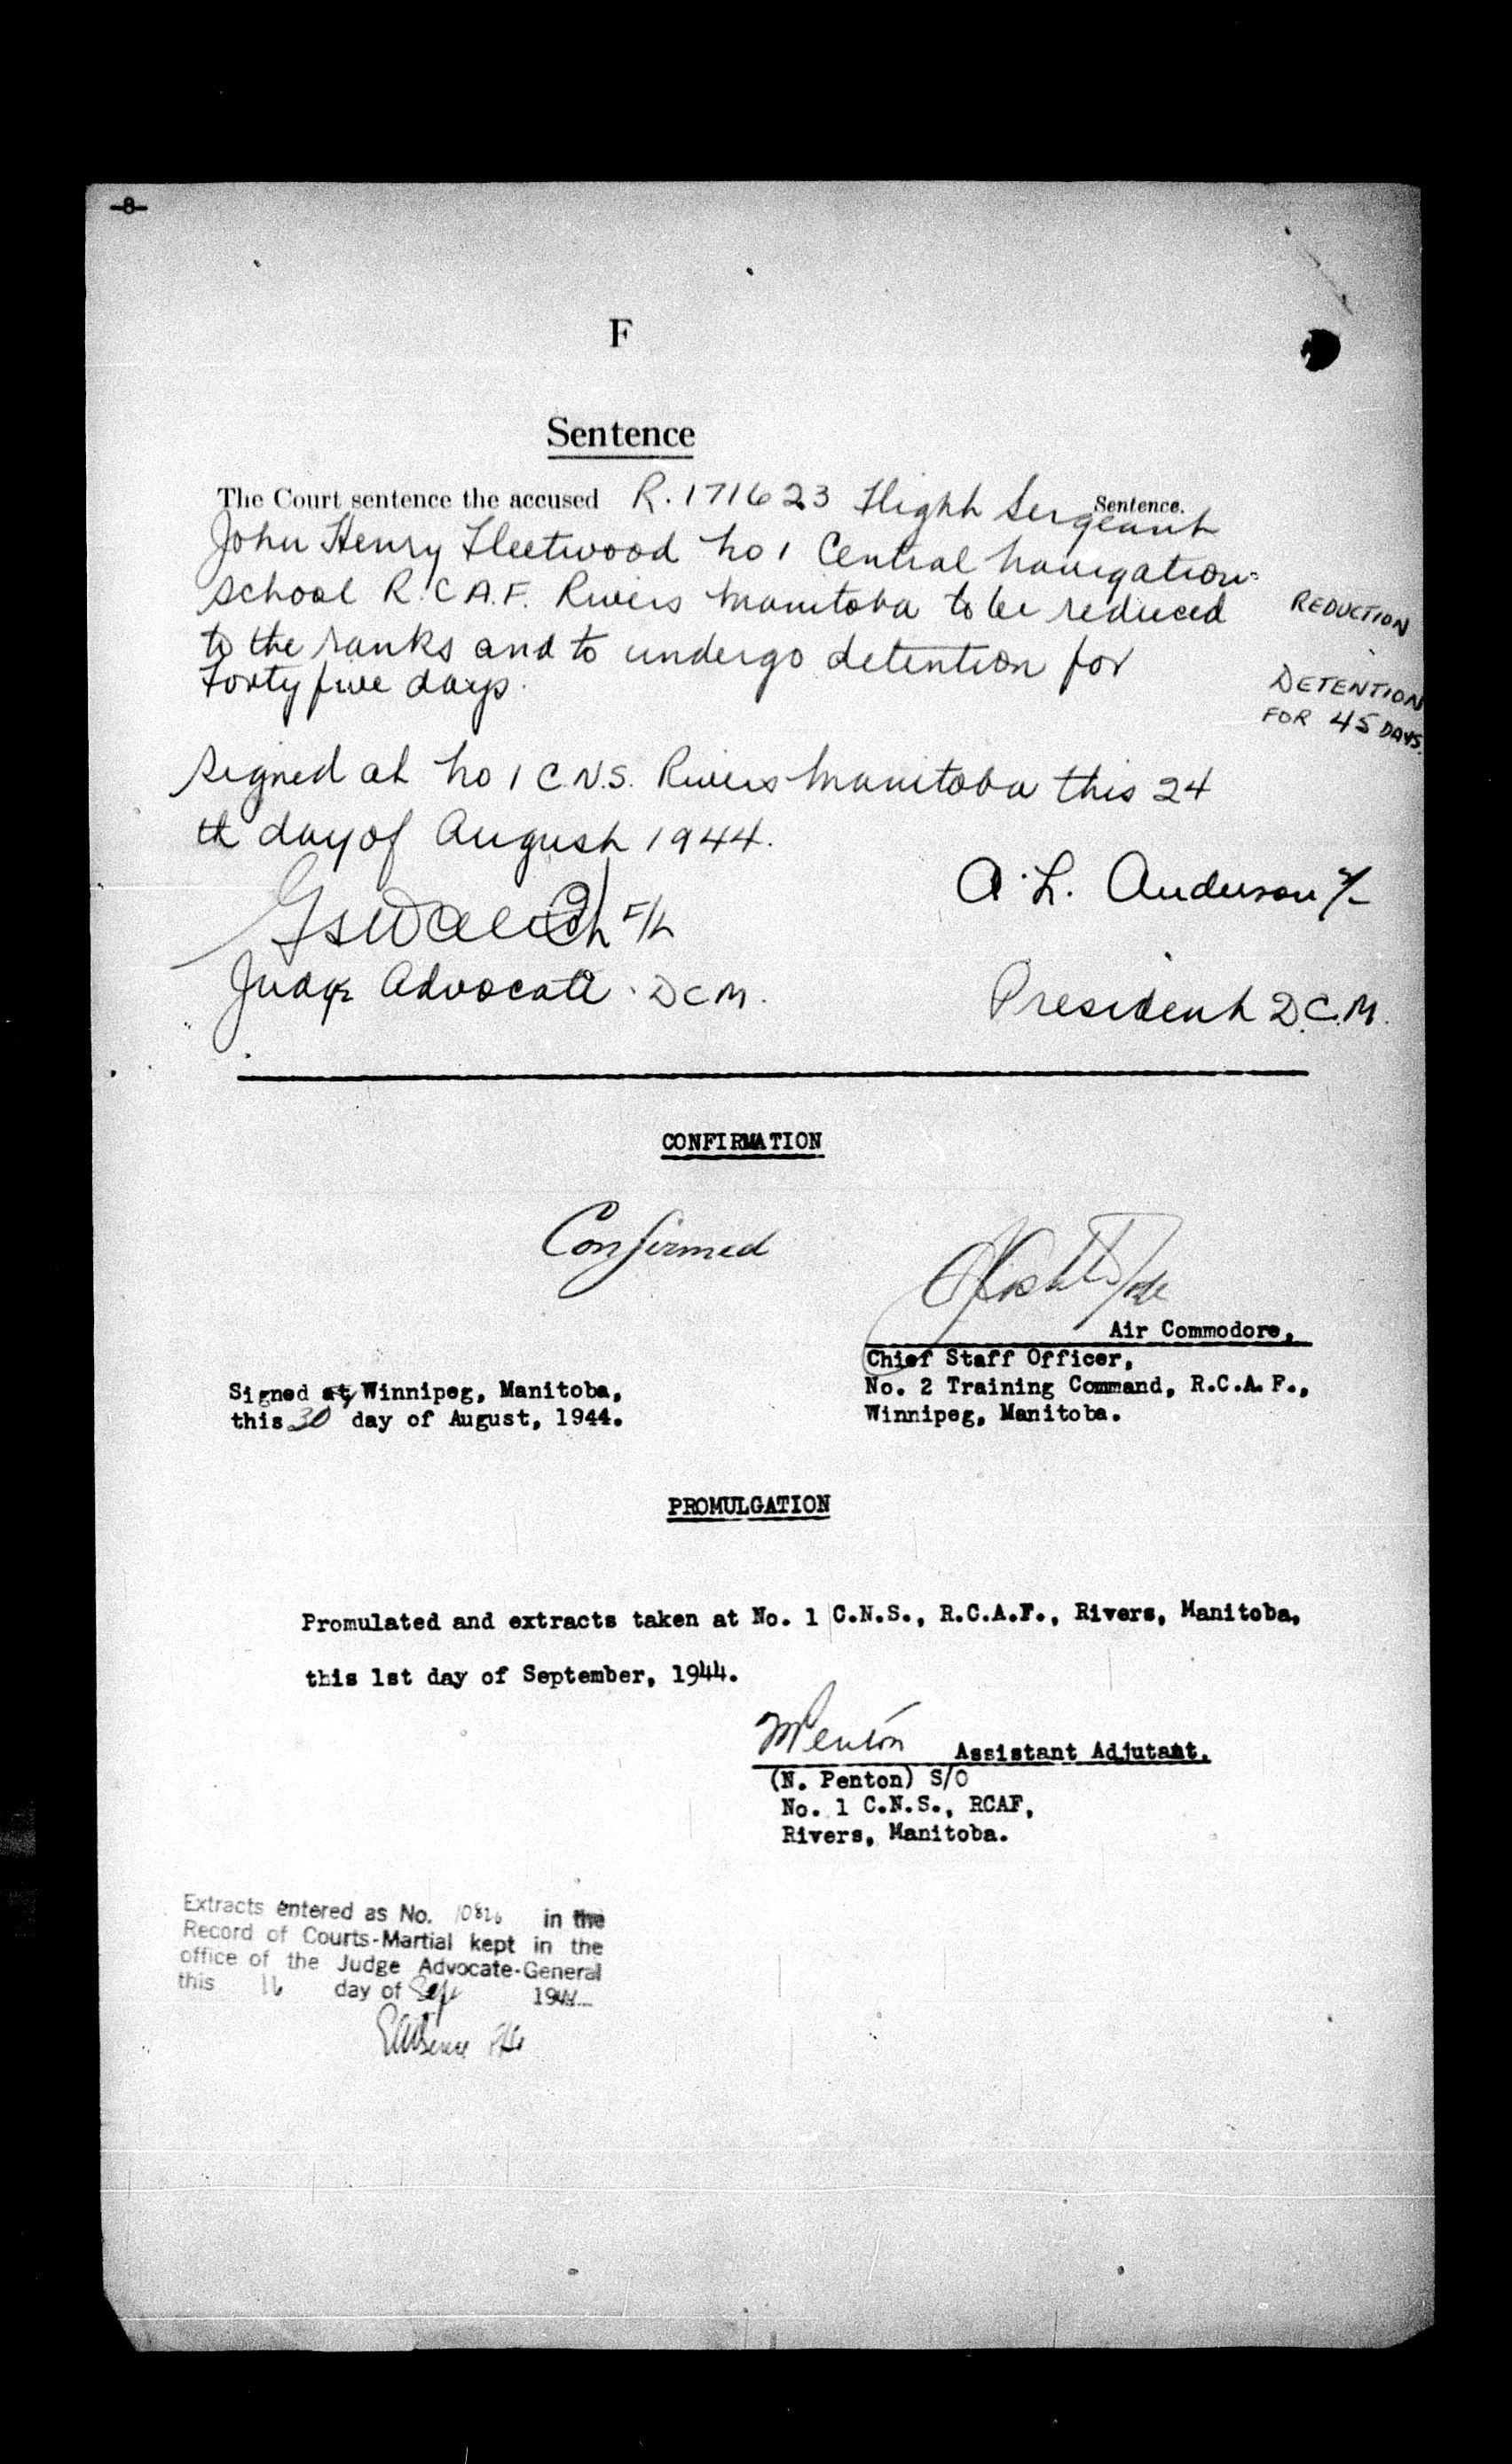 -8-
F
Sentence
The Court sentence the accused R.171623 Flight Sergeant
Sentence.
John Henry Fleetwood No 1 Central Navigation
School R.C.A.F. Rivers Manitoba to be reduced
to the ranks and to undergo detention for
forty five days.
REDUCTION
DETENTION
FOR 45 DAYS.
Signed at No 1 C.N.S. Rivers Manitoba this 24
th day of August 1944.
A. L. Anderson
F/L
Judge Advocate. D C M.
President D.C.M.
CONFIRMATION
Confirmed
Air Commodore,
Chief Staff Officer,
No. 2 Training Command, R.C.A.F.,
Winnipeg, Manitoba.
Signed at, Winnipeg, Manitoba,
this 30 day of August, 1944.
PROMULGATION
Promulated and extracts taken at No. 1 C.N.S., R.C.A.F., Rivers, Manitoba,
this 1st day of September, 1944.
NPenton Assistant Adjutant.
(N. Penton) S/O
No. 1 C.N.S., RCAF,
Rivers, Manitoba.
Extracts entered as No. 10826 in the
Record of Courts-Martial kept in the
office of the Judge Advocate-General
this 16 day of Sep 1944